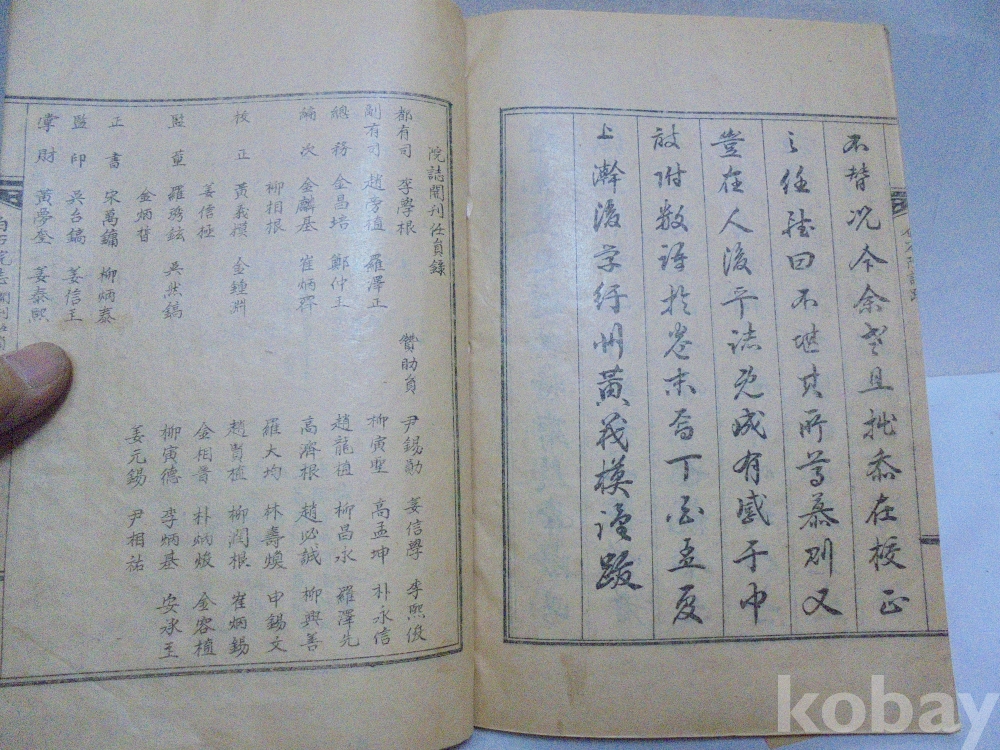 不替况今余老且拙忝在校正
之任雖曰不堪其所尊慕則又
豈在人後乎誌既成有感于中
敢附數語於卷末 丁酉孟夏
上澣後学紆州黃義模謹跋
院誌開刊任員錄
都有司 李學根
副有司 羅澤正
總務 金昌培 鄭仲王
編次 金麟基
柳相根
校正 黃義模 金鍾淵
姜信極
監董 吳然鎬
金炳晢
正書 宋萬鏞 柳炳泰
監印 吳台鎬 姜信王
掌財 黃夢奎 姜泰熙
贊助員
尹錫勛 姜信學 李熙俊
柳寅聖 高孟坤 朴永信
趙龍植 柳昌永 羅澤先
高濟根 趙必誠 柳興善
羅大均 林壽煥 申錫文
趙貴植 柳潤根 崔炳錫
金相晋 朴炳焌 金容植
柳寅德 李炳基 安承王
姜元錫 尹相祐
白石院志 開刊任員
kobay